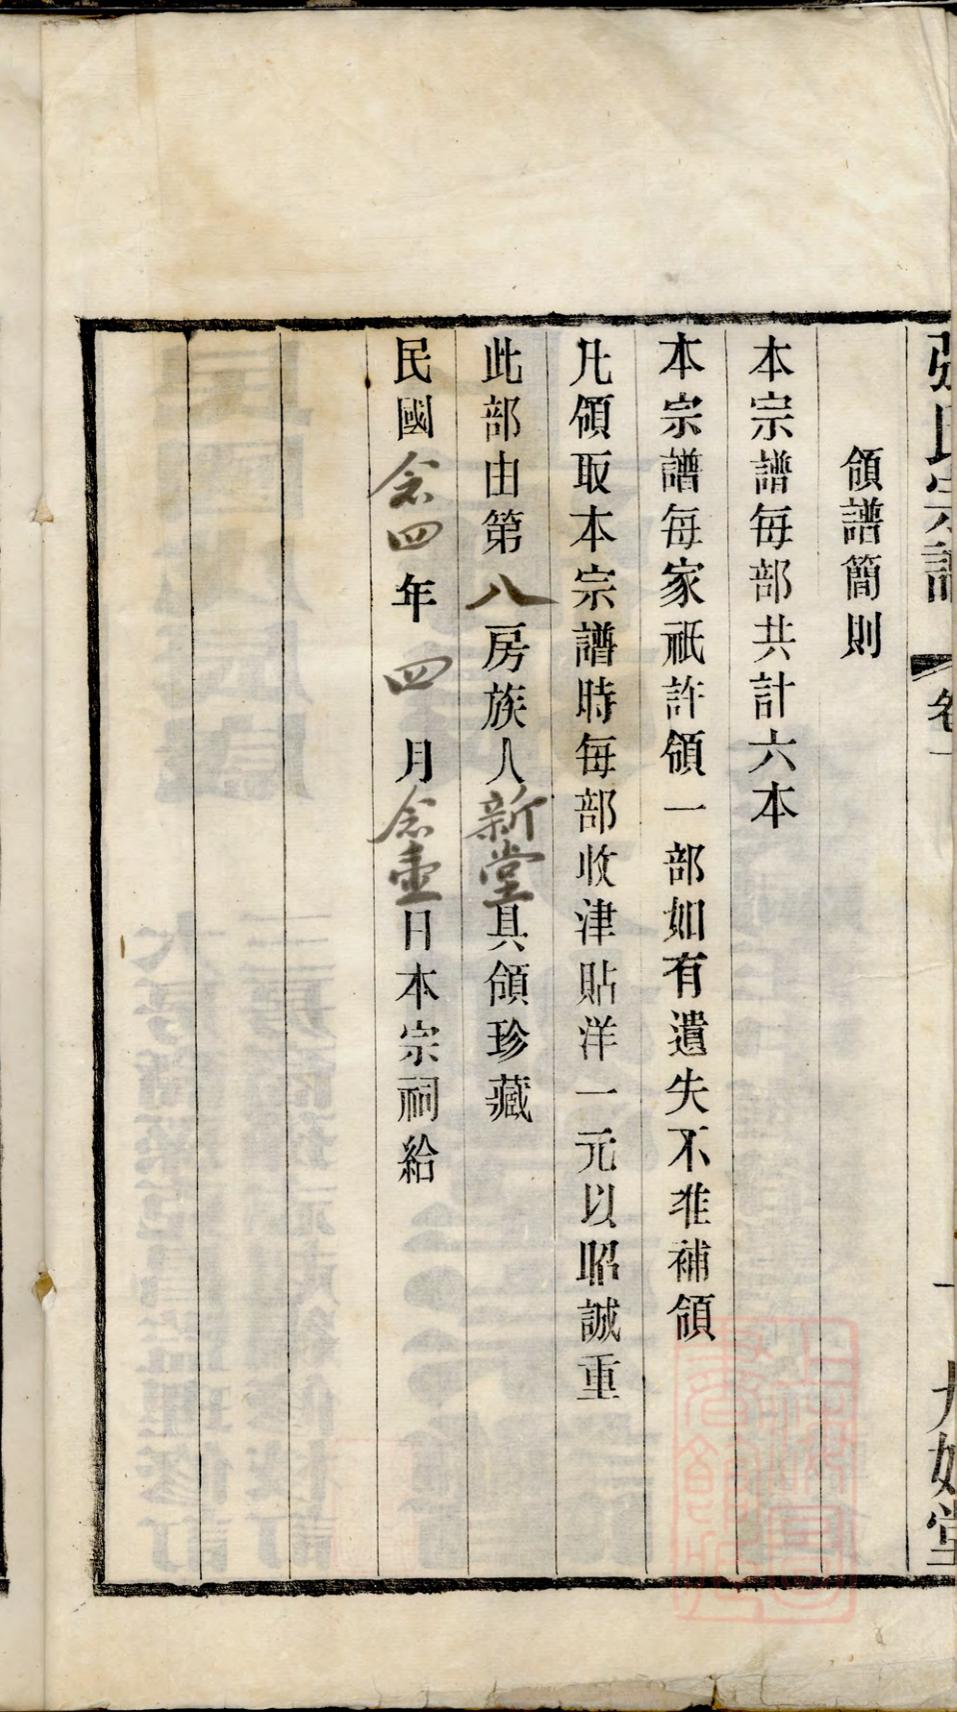 張氏宗譜 卷一 一 九如堂
領譜簡則
本宗譜每部共計六本
本宗譜每家祇許領一部如有遺失不准補領
凡領取本宗譜時每部收津貼洋一元以昭誠重
此部由第八房族人新堂具領珍藏
民國念四年四月念壹日本宗祠給